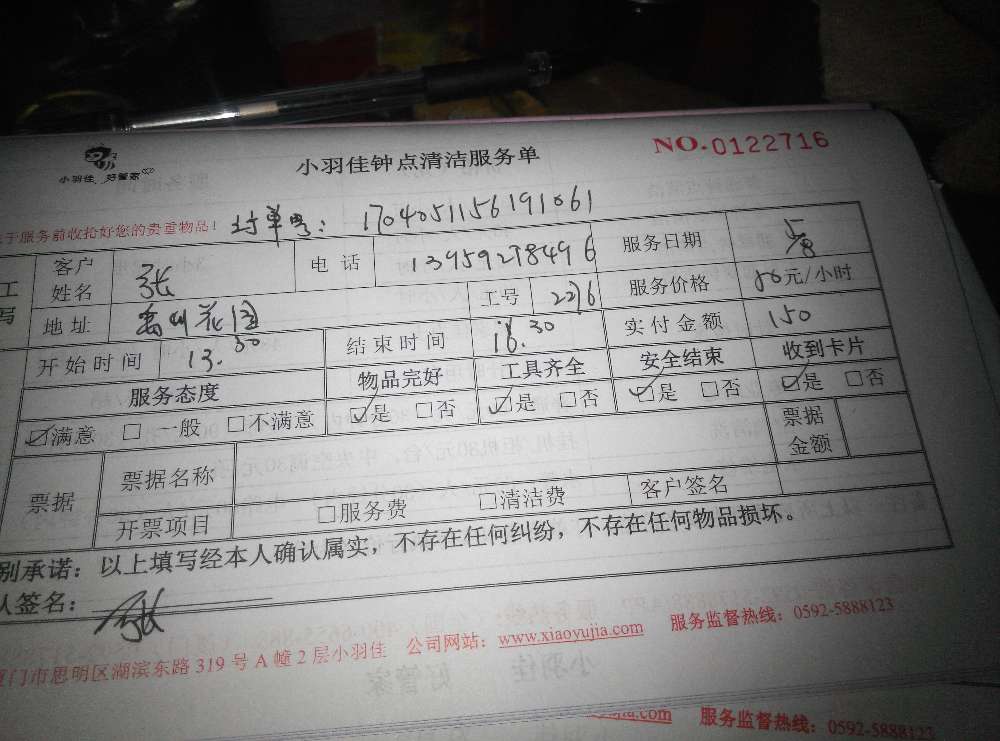 小羽佳 好管家
小羽佳钟点清洁服务单
NO.0122716
于服务前收拾好您的贵重物品!
订单号: 1704051156191061
工
写
客户姓名 张 电话 13959278496 服务日期
地址 禹州花园 工号 2276 服务价格 50元/小时
开始时间 13.30 结束时间 16.30 实付金额 150
服务态度 物品完好 工具齐全 安全结束 收到卡片
☑满意 □一般 □不满意 ☑是 □否 ☑是 □否 ☑是 □否 ☑是 □否
票据 票据名称 票据金额
开票项目 □服务费 □清洁费 客户签名
别承诺:以上填写经本人确认属实,不存在任何纠纷,不存在任何物品损坏。
人签名: 张
厦门市思明区湖滨东路319号A幢2层小羽佳 公司网站:www.xiaoyujia.com 服务监督热线:0592-5888123
服务监督热线:0592-5888123